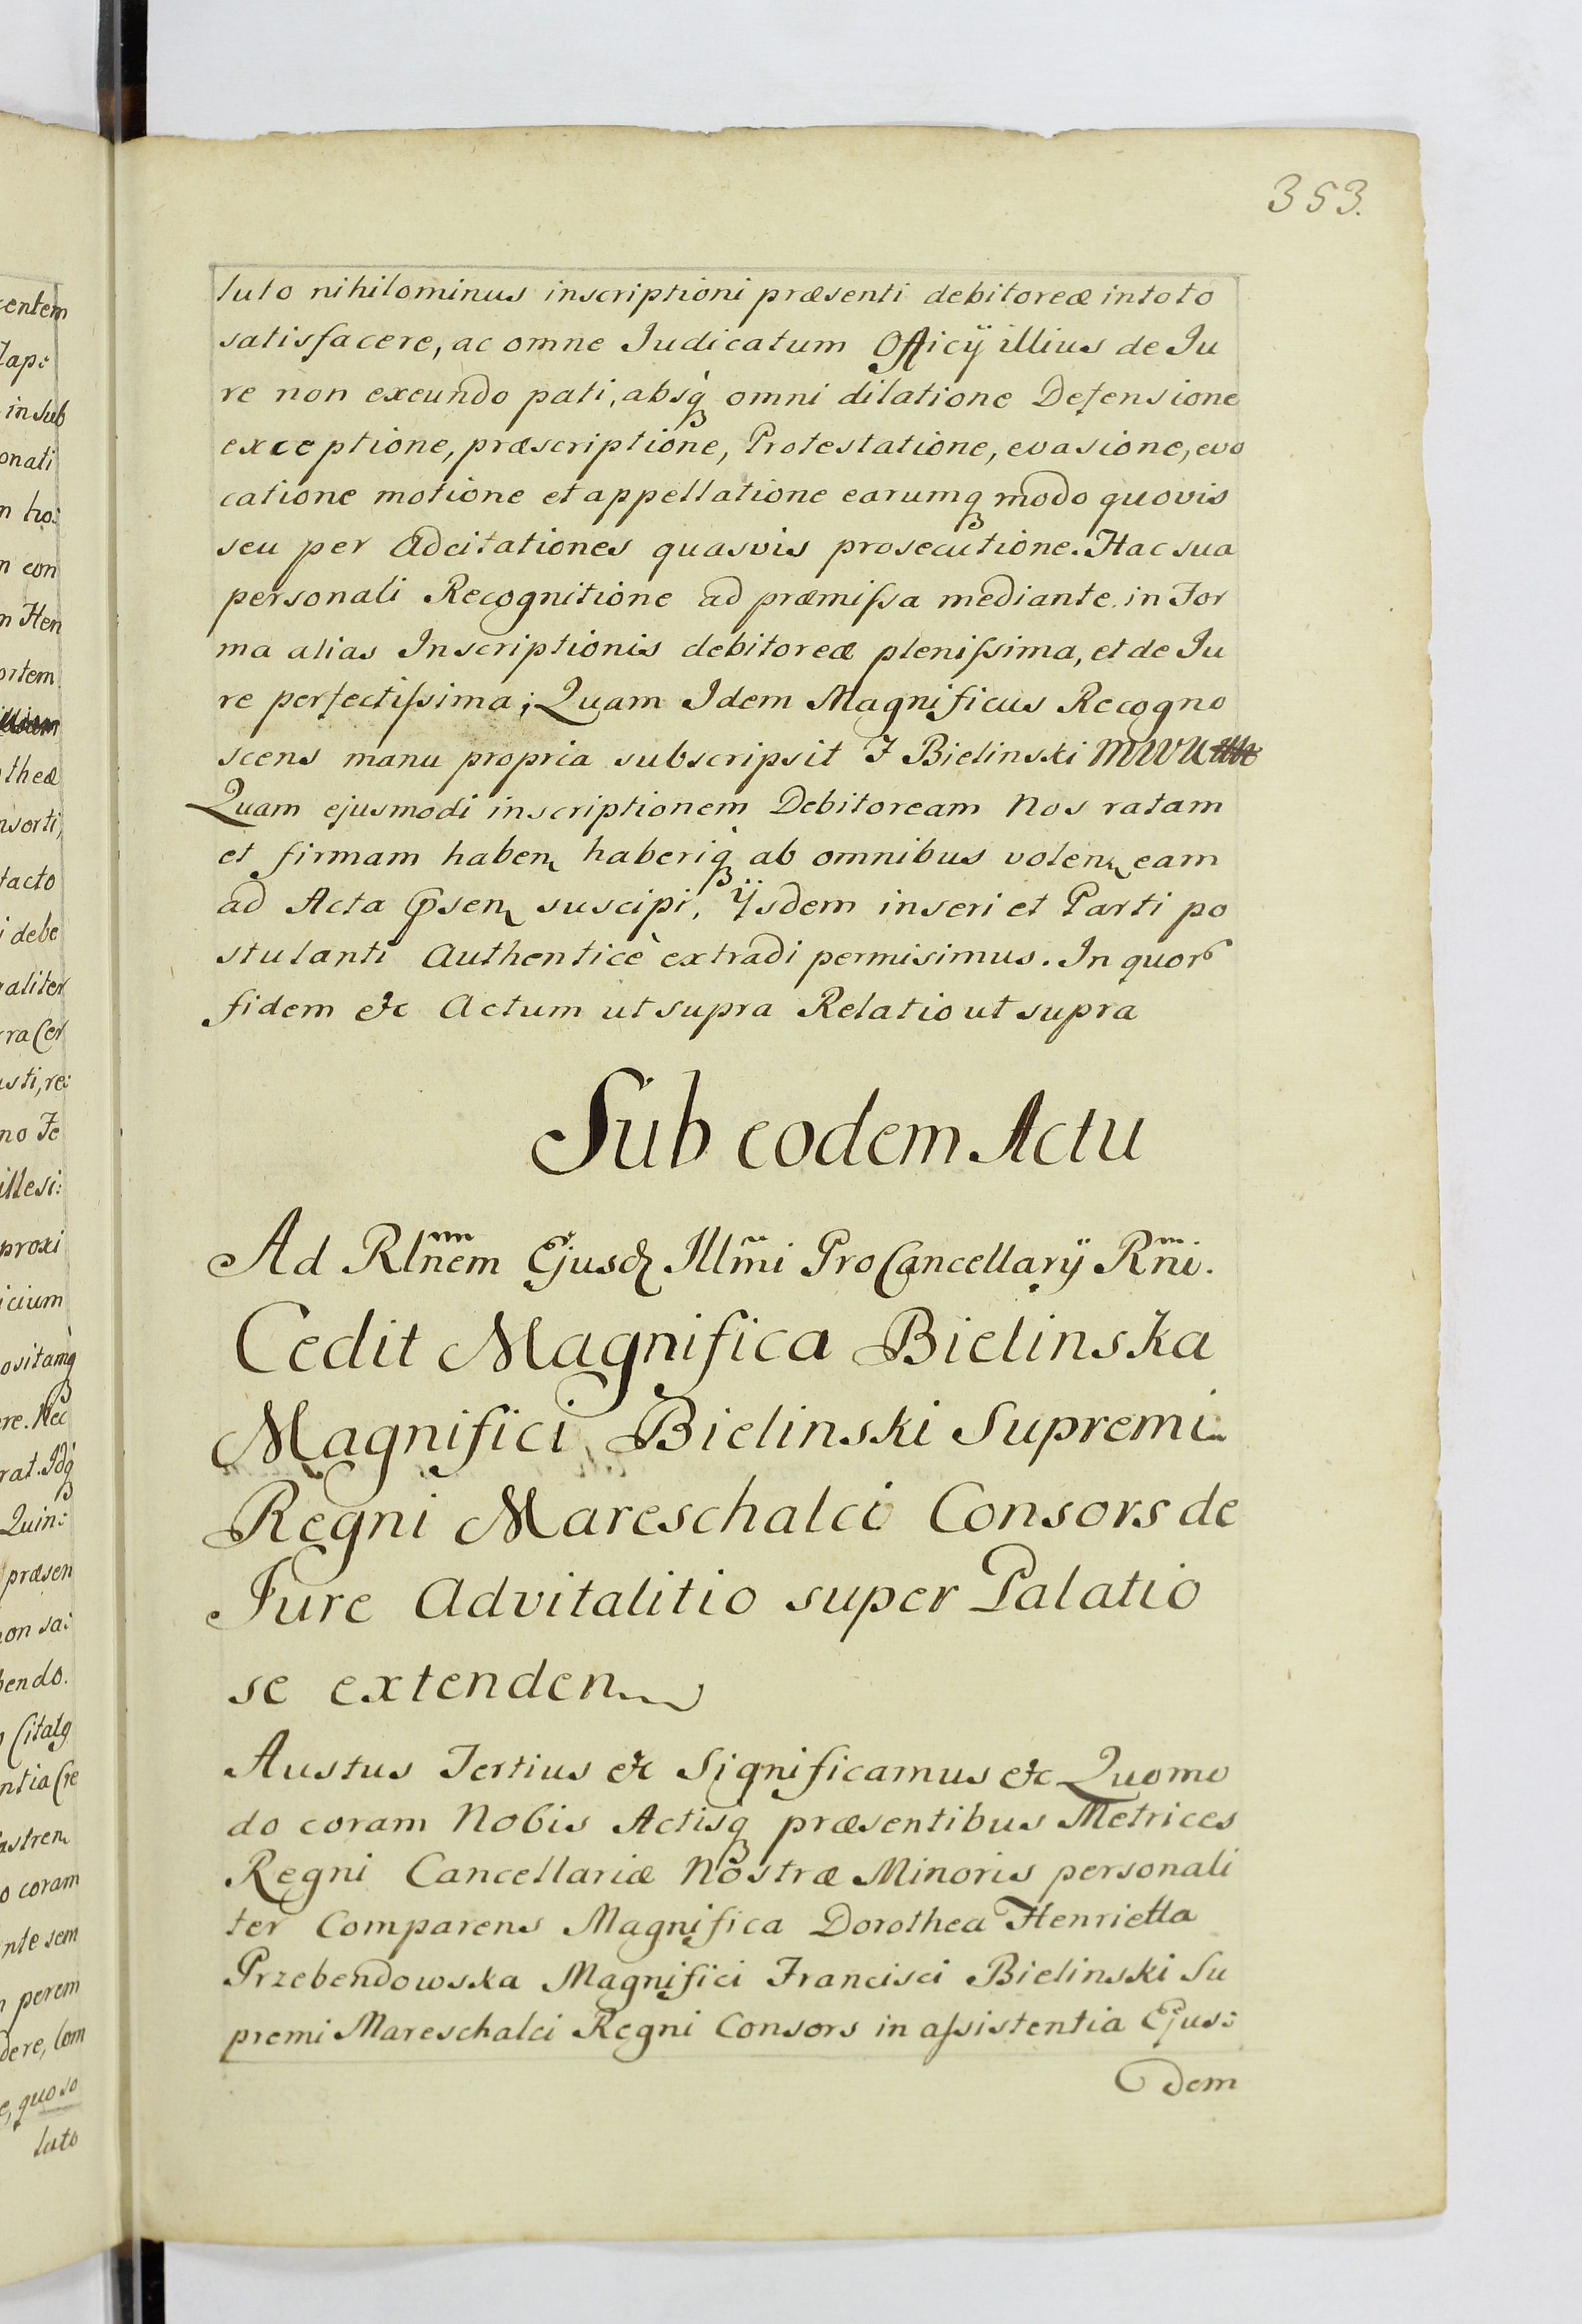 353.
luto nihilominus inscriptioni præsenti debitoreæ in toto
satisfacere, ac omne Judicatum Officÿ illius de Ju
re non exeundo pati, absq́ omni dilatione Defensione
exceptione, præscriptione, Protestatione, evasione, evo
catione motione et appellatione earumq modo quovis
seu per Adcitationes quasvis prosecutione. Hac sua
personali Recognitione ad præmiſsa mediante in For
ma alias Inscriptionis debitoreæ pleniſsima, et de Ju
re perfectiſsima; Quam Idem Magnificus Recogno
scens manu propria subscripsit F Bielinski MWK
Quam ejusmodi inscriptionem Debitoream Nos ratam
et firmam haben haberiq́ ab omnibus volen eam
ad Acta Psen suscipi, ÿsdem inseri et Parti po
stulanti Authenticè extradi permisimus. In quor
fidem etc Actum ut supra Relatio ut supra
Sub eodem Actu
Ad Rlnem Ejusd Illmi ProCancellarÿ Rni.
Cedit Magnifica Bielinska
Magnifici Bielinski Supremi
Regni Mareschalci Consors de
Jure Advitalitio super Palatio
se extenden
Austus Tertius etc Significamus etc Quomo
do coram Nobis Actisq præsentibus Metrices
Regni Cancellariæ Nostræ Minoris personali
ter Comparens Magnifica Dorothea Henrietta
Przebendowska Magnifici Francisci Bielinski Su
premi Mareschalci Regni Consors in aſsistentia Ejus:
dem